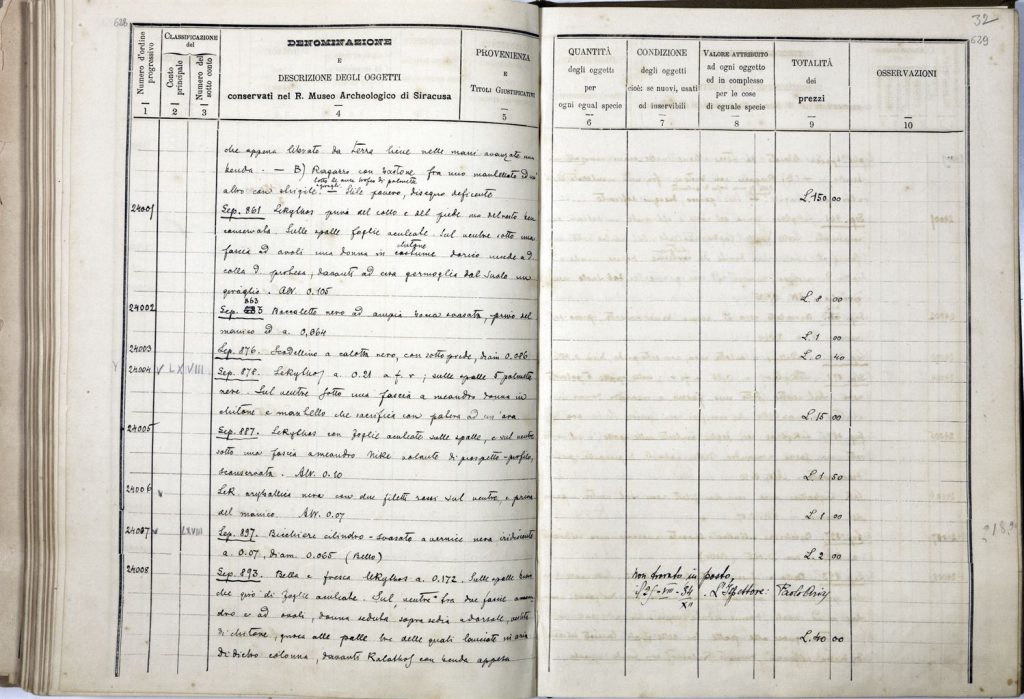 628
Numero d'ordine progressivo
1
CLASSIFICAZIONE del
Conto principale
2
Numero del sotto conto
3
DENOMINAZIONE
E
DESCRIZIONE DEGLI OGGETTI
conservati nel R. Museo Archeologico di Siracusa
4
PROVENIENZA
E
TITOLI GIUSTIFICATIVI
5
che appena liberato da terra tiene nelle mani avanzate una
benda. — B) Ragazzo con bastone fra uno manttellato ed un
sotto le anse trofeo di palmette
altro con strigile. — Stile povero, disegno deficente
24001
Sep. 861 Lekythos privo del collo e del piede ma del resto ben
conservata. Sulle spalle foglie aculeate. Sul ventre sotto una
chitone
fascia ad ovoli una donna in costume dorico incede a d.
colla d. protesa, davanti ad essa germoglia dal suolo un
. Alt. 0.105
24002
863
Sep. Boccaletto nero ad ampia bocca svasata, privo del
manico d a. 0,064
24003
Sep. 876. Scodellino a calotta nero, con sottopiede, diam 0.086
24004 v LXVIII
Sep. 878. Lekythos a. 0.21 a f. r; sulle spalle 5 palmette
nere. Sul ventre sotto una fascia a meandro donna in
chitone e mantello che sacrifica con patera ad un'ara
24005
Sep. 887. Lekythos con foglie aculeate sulle spalle, e sul ventre
sotto una fascia a meandro Nike volante di prospetto-profilo,
sconservata. Alt. 0.10
24006 v
Lek. aryballica nera con due filetti rossi sul ventre, e priva
del manico. Alt. 0.07
24007 v LXVIII
Sep. 897. Bicchiere cilindro-svasato a vernice nera iridescente
a. 0.07, diam. 0.065 (Bello)
24008
Sep. 893. Bella e fresca lekythos a. 0.172. Sulle spalle
giro di foglie aculeate. Sul ventre tra due fascie a mean
dro e ad ovoli, donna seduta sopra sedia a dorsale, vestita
di chitone, gioca alle palle tre delle quali lanciate in aria
di dietro colonna, davanti Kalathos con benda appesa
32
629
QUANTITÀ
degli oggetti
per
ogni egual specie
6
CONDIZIONE
degli oggetti
cioè: se nuovi, usati
od inservibili
7
VALORE ATTRIBUITO
ad ogni oggetto
od in complesso
per le cose
di eguale specie
8
TOTALITÀ
dei
prezzi
9
OSSERVAZIONI
10
L. 150 00
L. 8 00
L. 1 00
L. 0 40
L. 15 00
L. 1 50
L. 1 00
L. 2 00
non trovato in posto,
VIII - 34 . L'Ispettore:
XII
L. 40 00